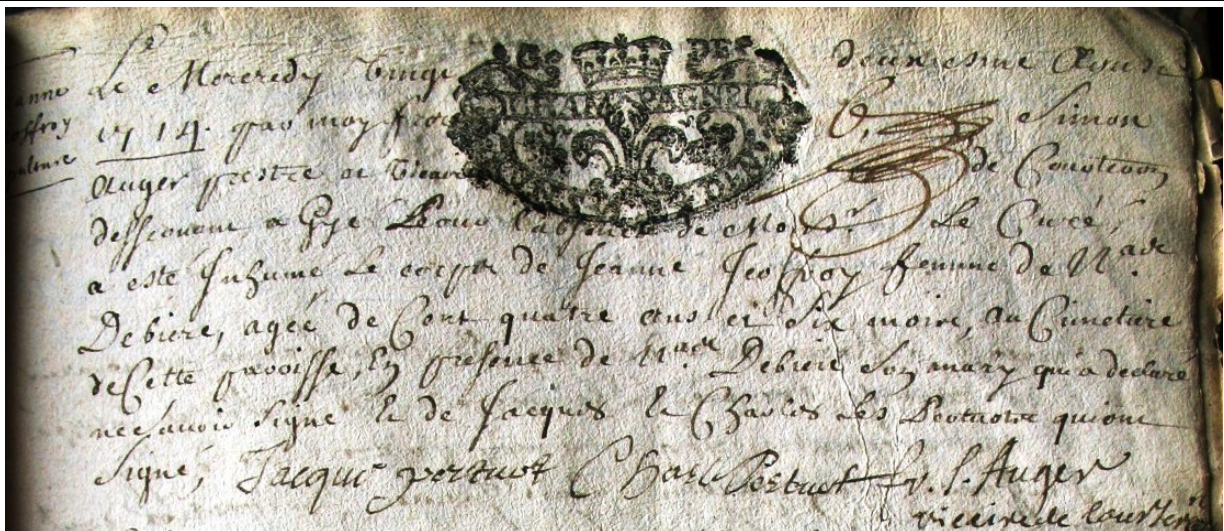 Le Mercredy vingt deuxiesme Aoust
1714. par moy Simon
Auger prestre et vicaire de Courteron
desservant a Gye sous l'absence de Mons.r Le Curé,
a esté Inhumé le corps de Jeanne Jeoffroy femme de
Debiere, agée de Cent quatre ans et six mois, au Cimetiere
de Cette paroisse, En presence de Debiere son mary qui a declaré
ne scavoir signé & de Jacques & Charles les Pertuots qui ont
signé, Jacque pertuot Charle Pertuot f. s. Auger
vicaire de